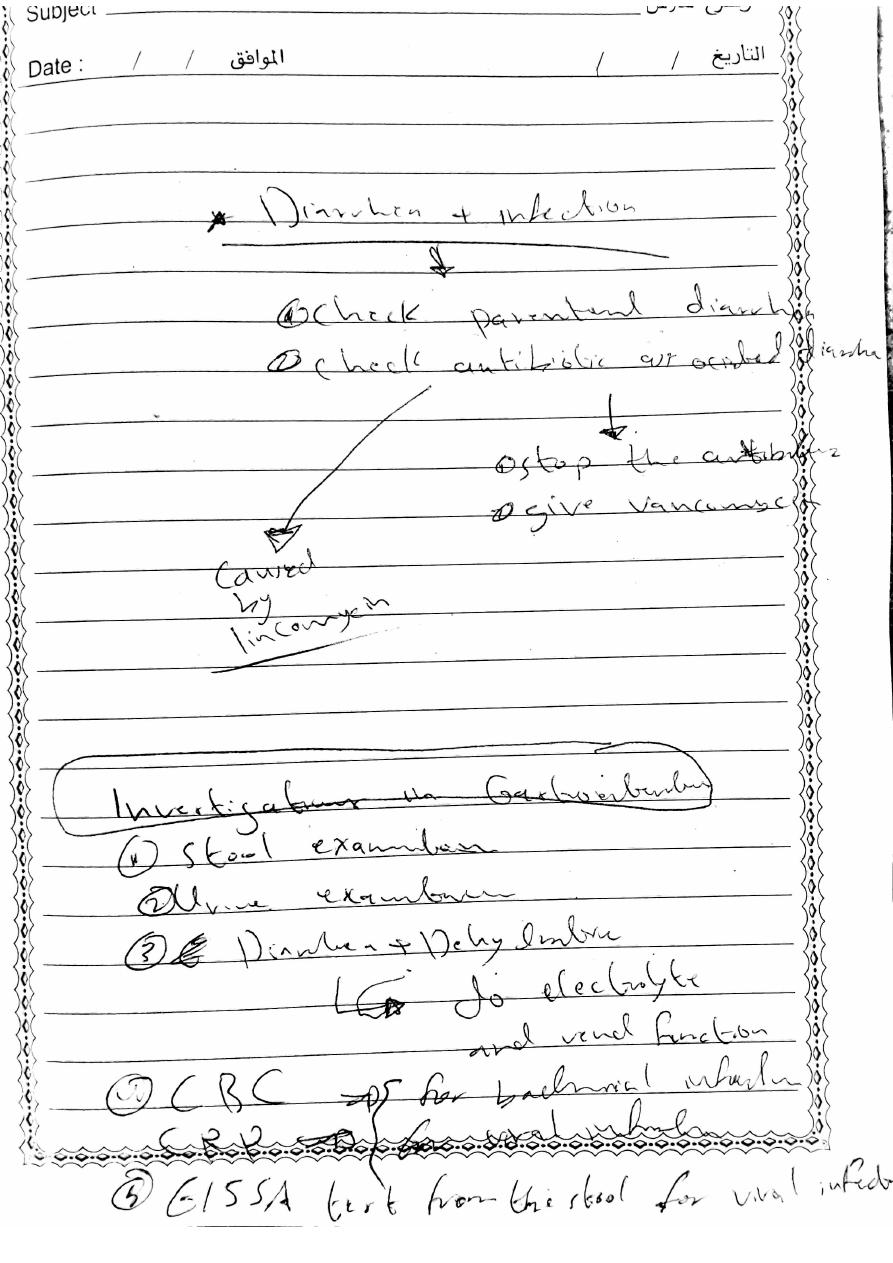 Subject
Date : / / الموافق / / التاريخ
* Diarrhea + infection
① check parenteral diarrhea
② check antibiotic associated diarrhea
① stop the antibiotic
② give vancomycin
Caused
by
lincomycin
Investigations in Gastroenteritis
① Stool examination
② Urine examination
③ Diarrhea + Dehydration
do electrolyte
and renal function
④ CBC → for bacterial infection
CRP → for viral infection
⑤ EISSA test from the stool for viral infect